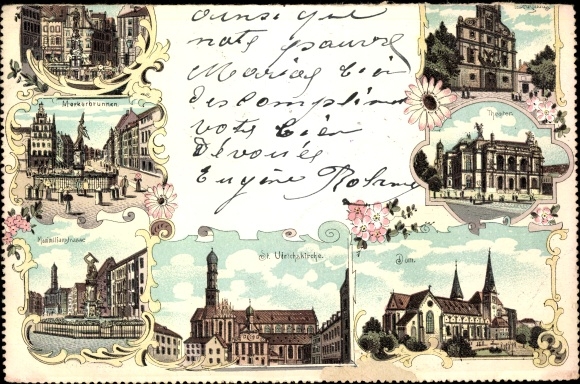 ainsi que
notre pauvre
Maria bien
des compliments
votre bien
Dévouée
Eugénie
Merkurbrunnen
Theater.
Maximilianstrasse
St. Ulrichskirche.
Dom.